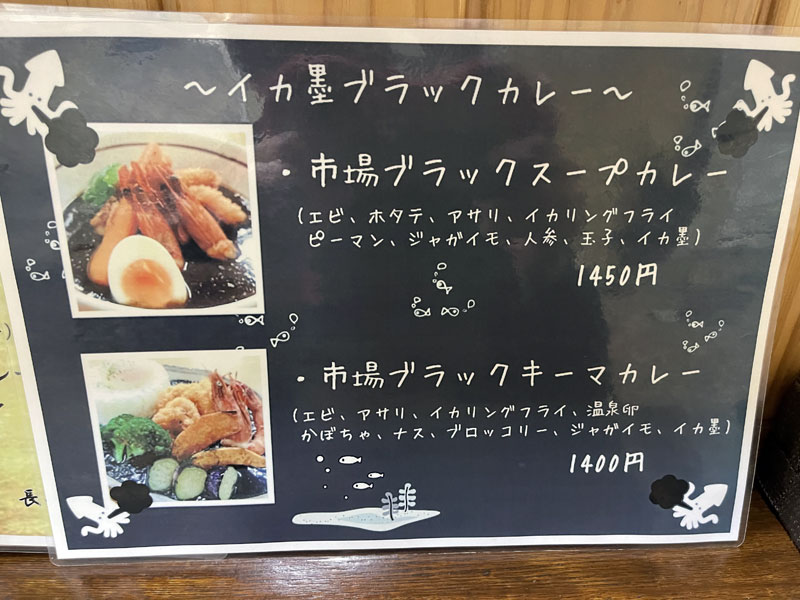 ～イカ墨ブラックカレー～
・市場ブラックスープカレー
(エビ、ホタテ、アサリ、イカリングフライ
ピーマン、ジャガイモ、人参、玉子、イカ墨)
1450円
・市場ブラックキーマカレー
(エビ、アサリ、イカリングフライ、温泉卵
かぼちゃ、ナス、ブロッコリー、ジャガイモ、イカ墨)
1400円
長